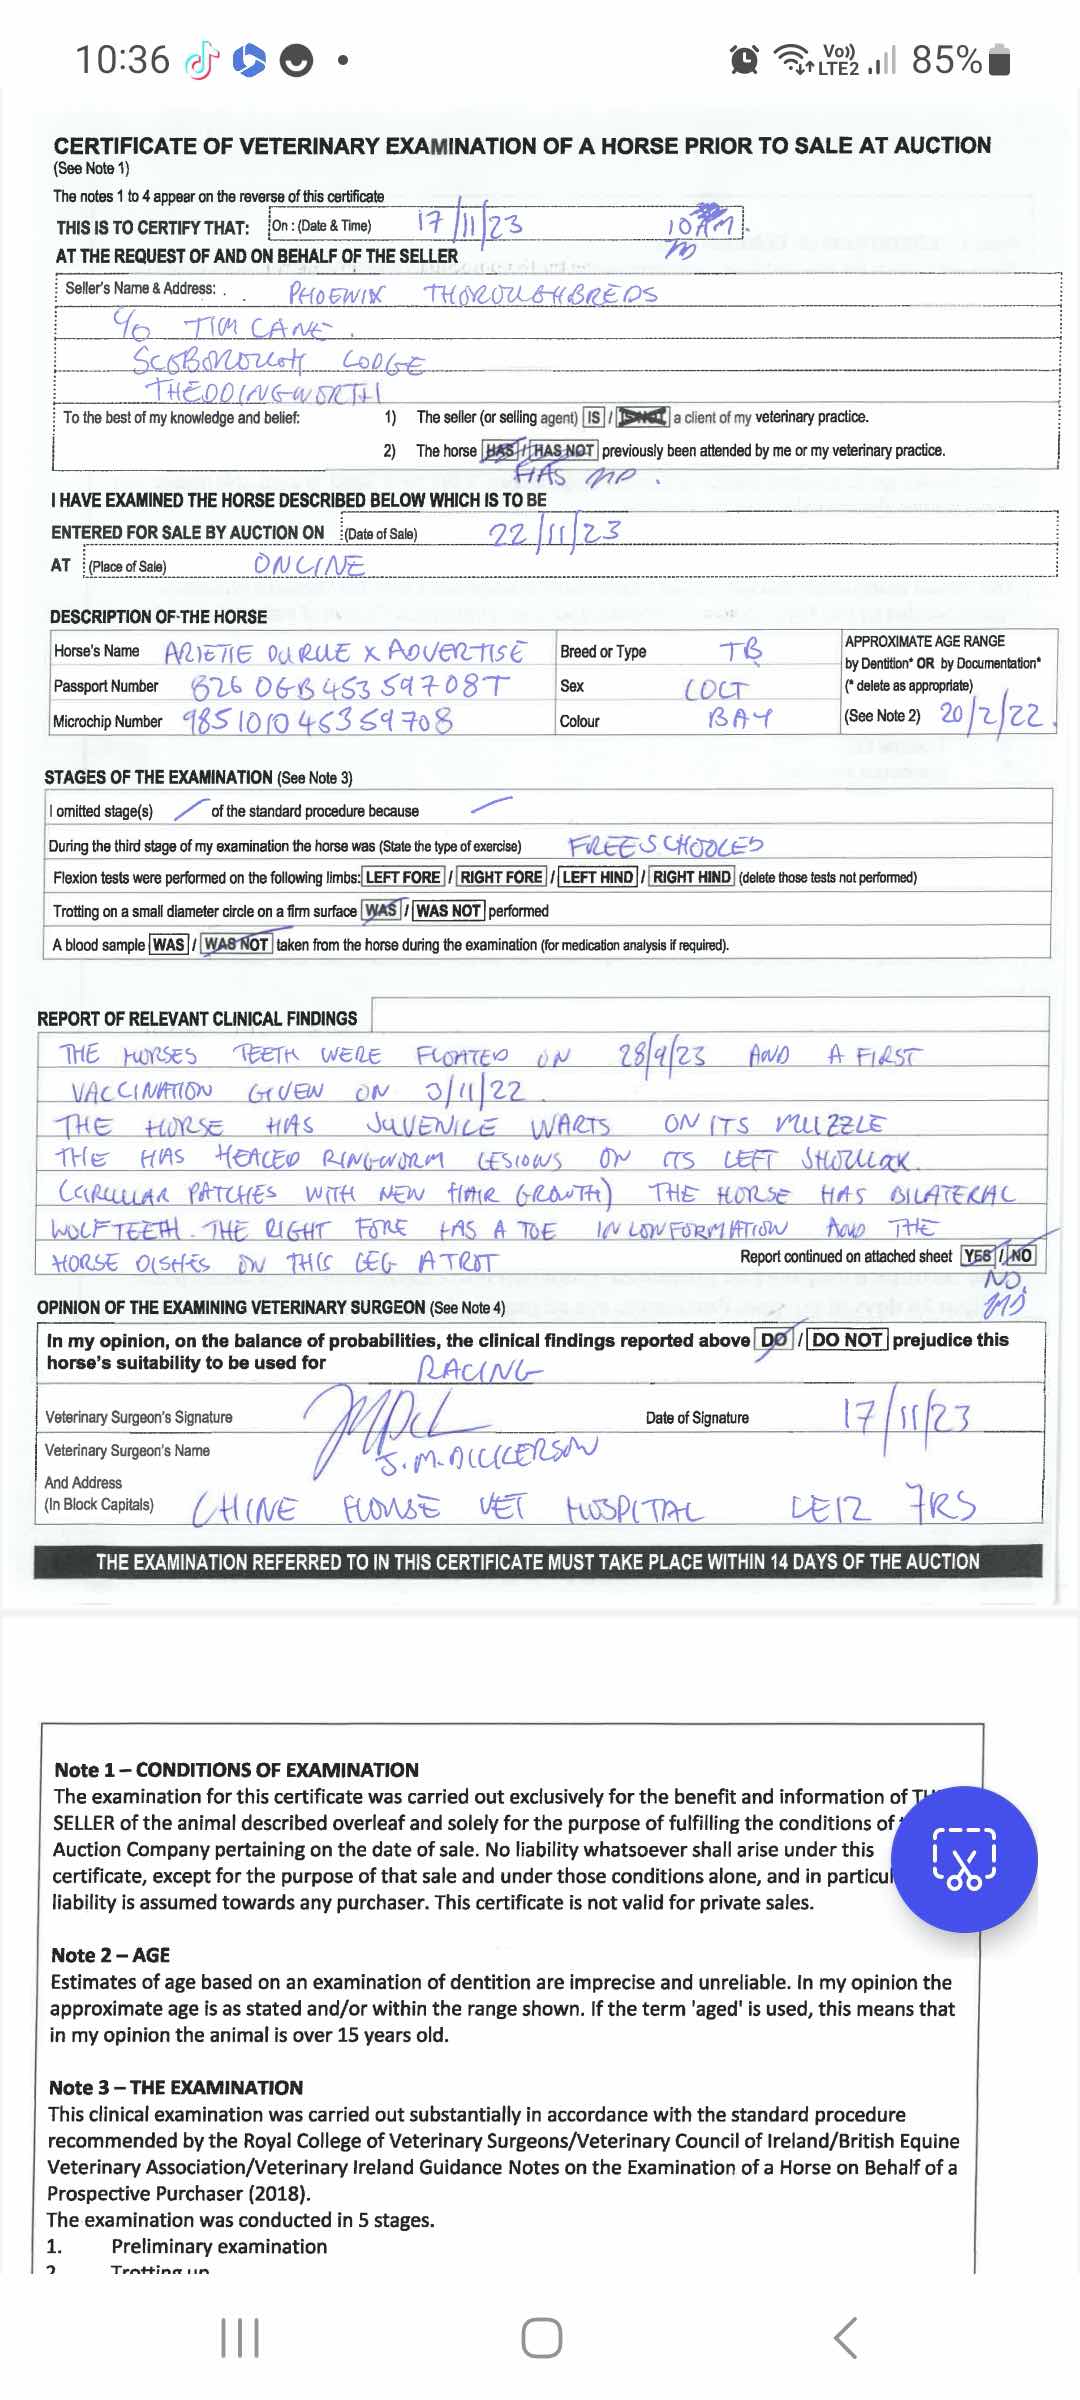 10:36 Vo)) LTE2 85%
CERTIFICATE OF VETERINARY EXAMINATION OF A HORSE PRIOR TO SALE AT AUCTION
(See Note 1)
The notes 1 to 4 appear on the reverse of this certificate
THIS IS TO CERTIFY THAT: On : (Date & Time) 17/11/23 10 AM
AT THE REQUEST OF AND ON BEHALF OF THE SELLER
Seller's Name & Address: PHOENIX THOROUGHBREDS
c/o TIM CANE.
SCOBOROUGH LODGE
THEDDINGWORTH
To the best of my knowledge and belief: 1) The seller (or selling agent) IS / IS NOT a client of my veterinary practice.
2) The horse HAS / HAS NOT previously been attended by me or my veterinary practice.
HAS MD.
I HAVE EXAMINED THE HORSE DESCRIBED BELOW WHICH IS TO BE
ENTERED FOR SALE BY AUCTION ON (Date of Sale) 22/11/23
AT (Place of Sale) ONLINE
DESCRIPTION OF THE HORSE
Horse's Name ARIETIE DU RUE X ADVERTISE Breed or Type TB APPROXIMATE AGE RANGE
by Dentition* OR by Documentation*
Passport Number 826 0GB 453 59708T Sex COLT (* delete as appropriate)
Microchip Number 985101045359708 Colour BAY (See Note 2) 20/2/22.
STAGES OF THE EXAMINATION (See Note 3)
I omitted stage(s) / of the standard procedure because
During the third stage of my examination the horse was (State the type of exercise) FREE SCHOOLED
Flexion tests were performed on the following limbs: LEFT FORE / RIGHT FORE / LEFT HIND / RIGHT HIND (delete those tests not performed)
Trotting on a small diameter circle on a firm surface WAS / WAS NOT performed
A blood sample WAS / WAS NOT taken from the horse during the examination (for medication analysis if required).
REPORT OF RELEVANT CLINICAL FINDINGS
THE HORSES TEETH WERE FLOATED ON 28/9/23 AND A FIRST
VACCINATION GIVEN ON 3/11/22.
THE HORSE HAS JUVENILE WARTS ON ITS MUZZLE
THE HAS HEALED RINGWORM LESIONS ON ITS LEFT
(CIRCULAR PATCHES WITH NEW HAIR GROWTH) THE HORSE HAS BILATERAL
WOLF TEETH. THE RIGHT FORE HAS A TOE IN CONFORMATION AND THE
HORSE DISHES ON THIS LEG A TROT Report continued on attached sheet YES / NO
NO.
MD
OPINION OF THE EXAMINING VETERINARY SURGEON (See Note 4)
In my opinion, on the balance of probabilities, the clinical findings reported above DO / DO NOT prejudice this
horse's suitability to be used for RACING
Veterinary Surgeon's Signature Date of Signature 17/11/23
Veterinary Surgeon's Name J.M. DICKERSON
And Address
(In Block Capitals) CHINE HOUSE VET HOSPITAL LE12 7RS
THE EXAMINATION REFERRED TO IN THIS CERTIFICATE MUST TAKE PLACE WITHIN 14 DAYS OF THE AUCTION
Note 1 – CONDITIONS OF EXAMINATION
The examination for this certificate was carried out exclusively for the benefit and information of
SELLER of the animal described overleaf and solely for the purpose of fulfilling the conditions of
Auction Company pertaining on the date of sale. No liability whatsoever shall arise under this
certificate, except for the purpose of that sale and under those conditions alone, and in
liability is assumed towards any purchaser. This certificate is not valid for private sales.
Note 2 – AGE
Estimates of age based on an examination of dentition are imprecise and unreliable. In my opinion the
approximate age is as stated and/or within the range shown. If the term 'aged' is used, this means that
in my opinion the animal is over 15 years old.
Note 3 – THE EXAMINATION
This clinical examination was carried out substantially in accordance with the standard procedure
recommended by the Royal College of Veterinary Surgeons/Veterinary Council of Ireland/British Equine
Veterinary Association/Veterinary Ireland Guidance Notes on the Examination of a Horse on Behalf of a
Prospective Purchaser (2018).
The examination was conducted in 5 stages.
1. Preliminary examination
2. Trotting up